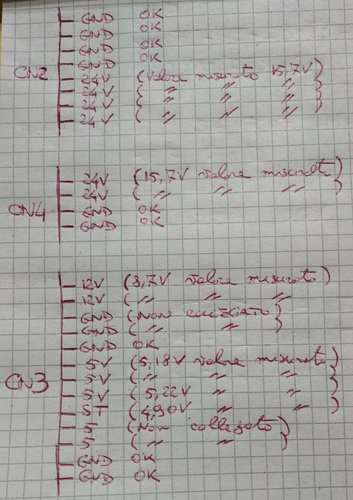 GND OK
GND OK
GND OK
GND OK
CN2
24V (Valore misurato 15,7V)
24V ( " " " )
24V ( " " " )
24V ( " " " )
24V (15,7V valore misurato)
24V ( " " " )
CN4
GND OK
GND OK
12V (8,7V valore misurato)
12V ( " " " )
GND (Non collegato)
GND ( " " )
GND OK
5V (5,18V valore misurato)
CN3
5V ( " " " )
5V ( 5,22V " " )
5T ( 4,90V " " )
5 (Non collegato)
5 ( " " )
GND OK
GND OK